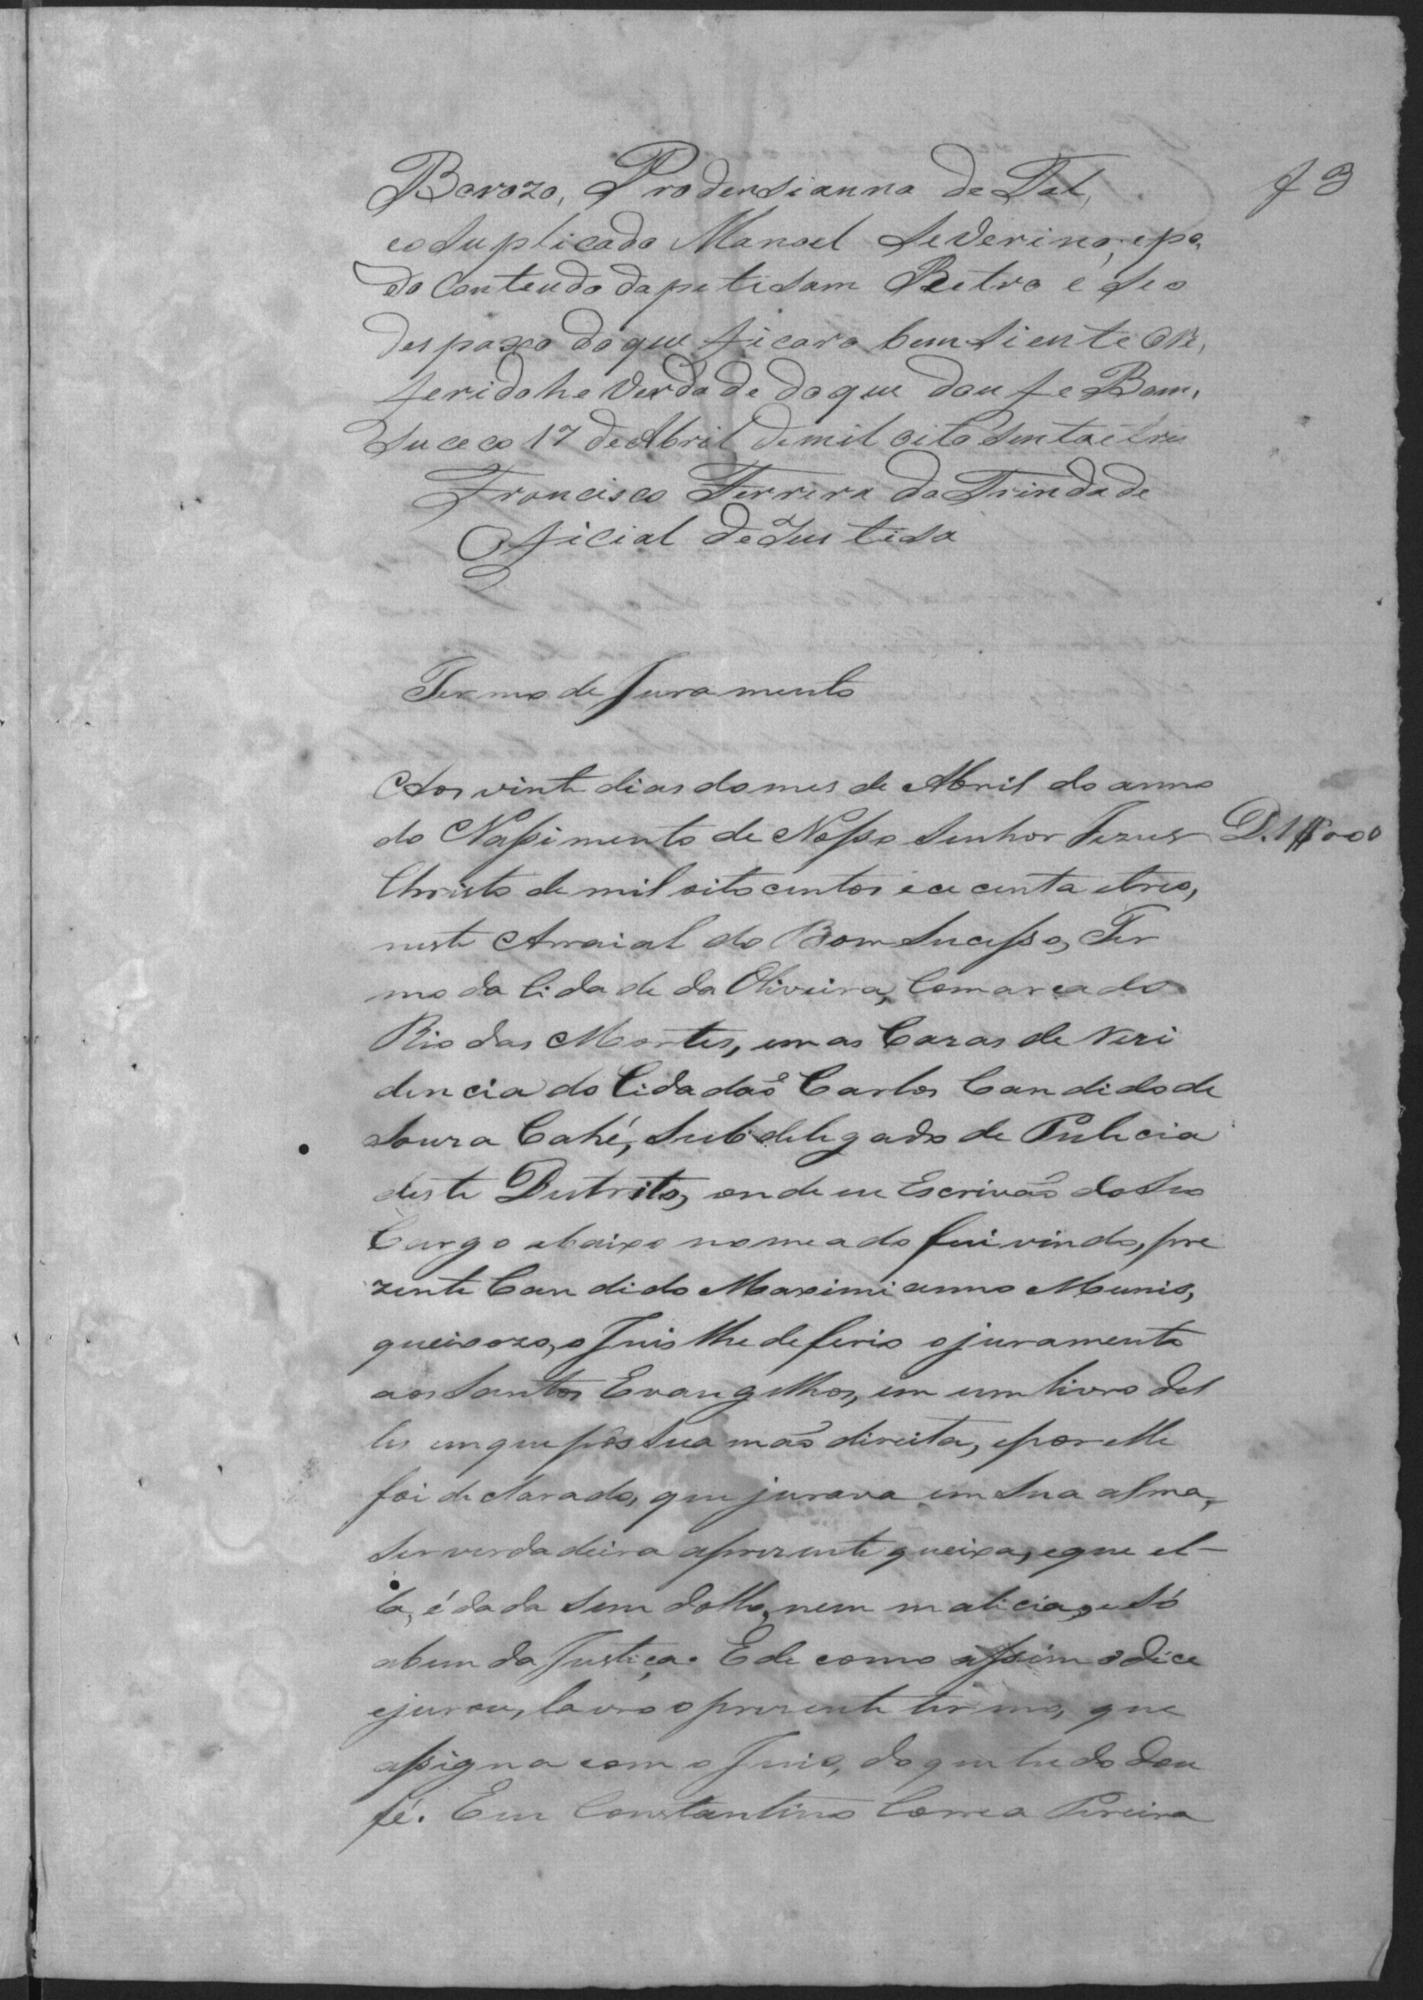 f 3
Barozo, Prodensianna de Tal,
eo Suplicado Manoel Severino, epo,
do Conteudo dapetisam Retro e seo
despaxo doque ficara bem siente ore,
ferido he verdade doque dou fe Bom,
Suceco 17 de Abril de mil oito sentaetres
Francisco Ferrera da Trindade
Oficial de Justisa
Termo de Juramento
Aos vinte dias do mes de Abril do anno
do Nassimento de Nosso Senhor Jezus D. 1$000
Christo de mil oito centos e cecenta etres,
neste Arraial do Bom Sucesso, Ter
mo da Cidade da Oliveira, Comarca do
Rio das Mortes, em as Cazas de rezi
dencia do Cidadão Carlos Candido de
Souza Cahé, Subdelegado de Pulicia
deste Distrito, onde eu Escrivão do seo
Cargo abaixo nomeado fui vindo, pre
zente Candido Maximianno Munis,
queixozo, o Juis lhe deferio o juramento
aos Santos Evangelhos, em um livro del
les em que pôs sua mão direita, e por elle
foi declarado, que jurava em sua alma,
ser verdadeira aprezente queixa, eque el-
la, é dada sem dollo, nem malicia, e só
abem da Justiça. E de como assim o dice
ejurou, lavro o prezente termo, que
assigna com o Juis, do que tudo dou
fé. Eu Constantino Correa Pereira